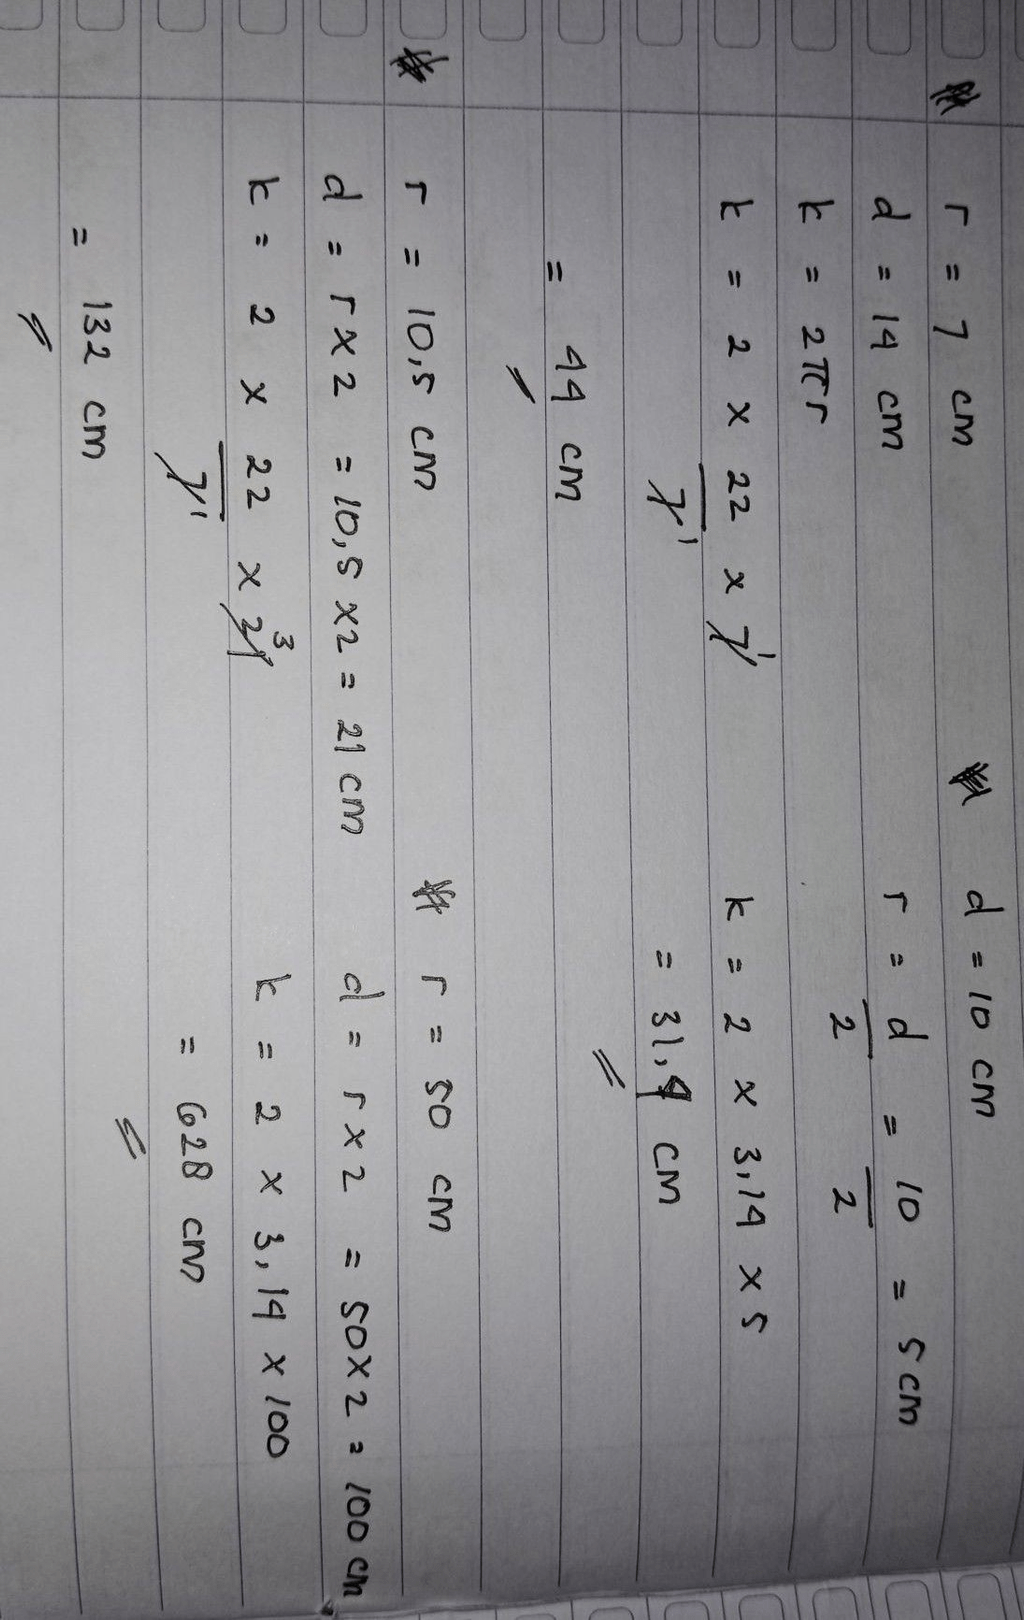 r = 7 cm
d = 14 cm
k = 2πr
k = 2 x 22/7 x 7 1
1
= 44 cm
d = 10 cm
r = d/2 = 10/2 = 5 cm
k = 2 x 3,14 x 5
= 31,4 cm
r = 10,5 cm
d = r x 2 = 10,5 x 2 = 21 cm
k = 2 x 22/7 x 21 3
1
= 132 cm
r = 50 cm
d = r x 2 = 50 x 2 = 100 cm
k = 2 x 3,14 x 100
= 628 cm